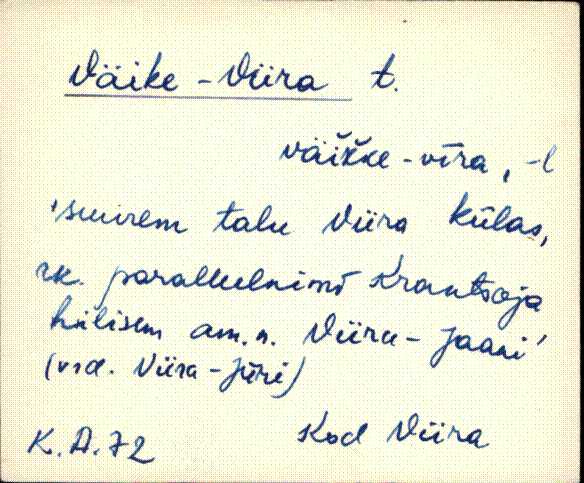 Väike-Viira t.
väiǩǩe-vīra, -l
'suurem talu Viira külas,
rk. paralleelnimi Krantsoja
hilisem am.n. Viira-Jaani'
(vrd. Viira-Jüri)
Kod Viira
K.A.72